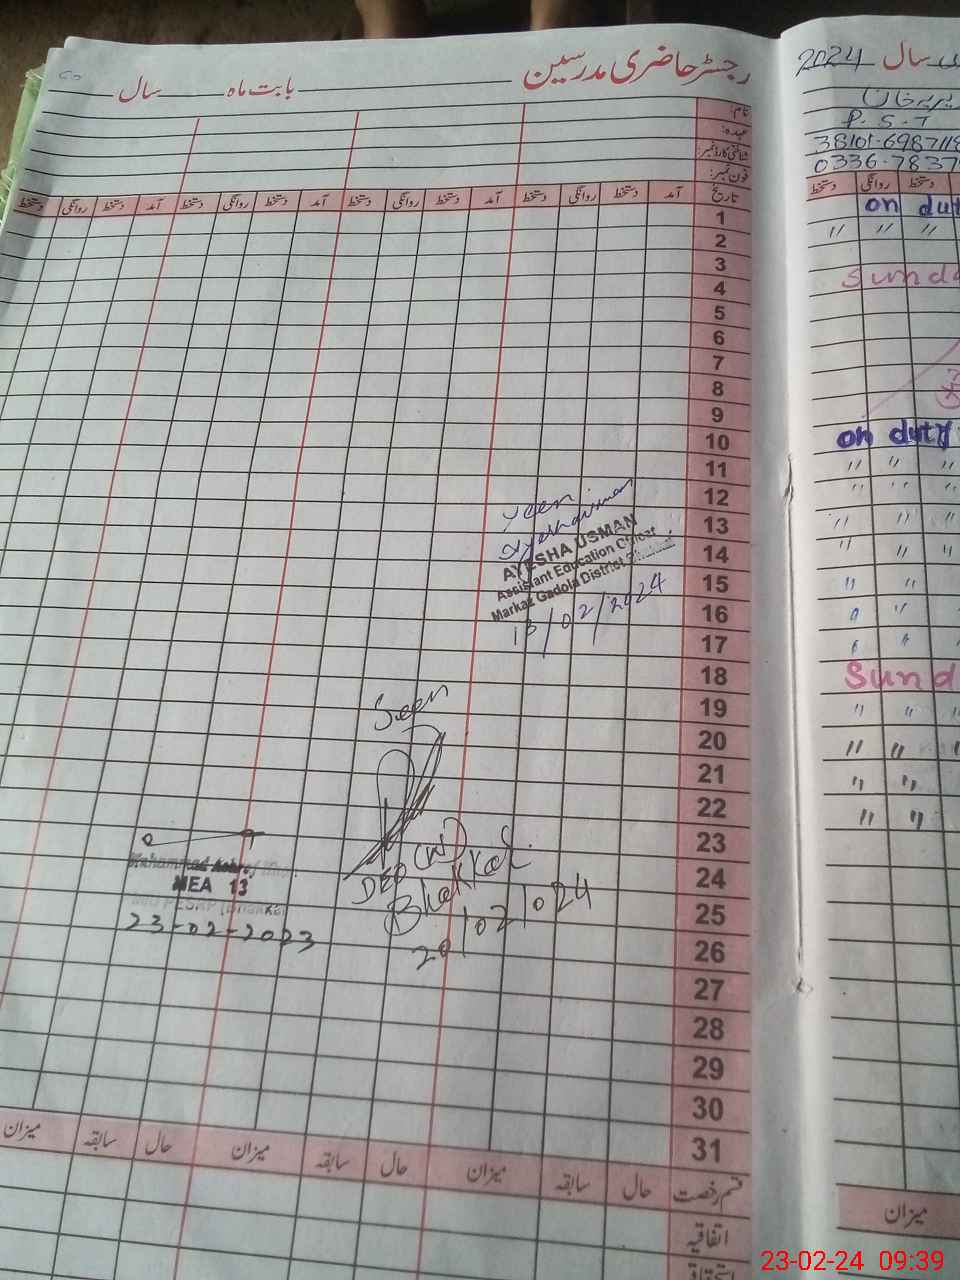 رجسٹر حاضری مدرسین
بابت ماہ
سال
نام:
عہدہ:
شناختی کارڈ نمبر:
فون نمبر:
تاریخ آمد دستخط روانگی دستخط آمد دستخط روانگی دستخط آمد دستخط روانگی دستخط آمد دستخط روانگی دستخط
1
2
3
4
5
6
7
8
9
10
11
12
13
14
15
16
17
18
19
20
21
22
23
24
25
26
27
28
29
30
31
Seen
AYESHA USMAN
Assistant Education Officer
Markaz Gadola District
13/02/2024
Seen
DEO (W)
Bhakkar
20/02/024
MEA 13
23-02-2023
قسم رخصت حال سابقہ میزان حال سابقہ میزان حال سابقہ میزان
اتفاقیہ
سال 2024
P.S.T
38101-6987118
0336-7837
دستخط روانگی دستخط
on dut
" " "
Sunda
on duty
" " "
" " "
" " "
" " "
" "
" "
" "
Sund
" "
" " "
" "
" "
میزان
23-02-24 09:39